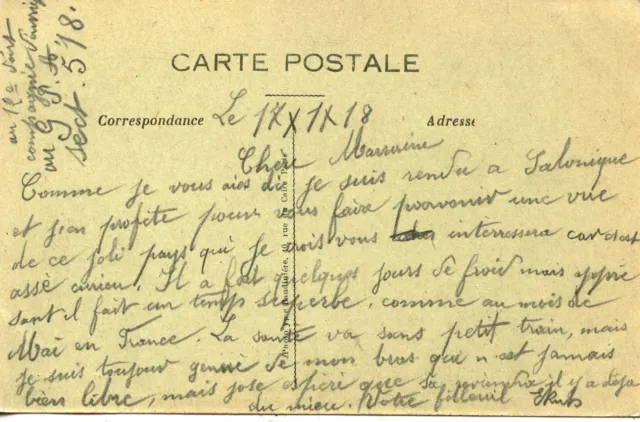 au
compagnie
au G B A
sect. 518.
CARTE POSTALE
Correspondance Le 17 X 1X 18 Adresse
Chère Marraine
Comme je vous aies dit je suis rendu a Salonique
et j'en profite pour vous faire parvenir une vue
de ce joli pays qui je crois vous interressera car c'est
assé curieu. Il a fait quelques jours de froid mais apprè
sant il fait un temps superbe, comme au mois de
Mai en France. La santé va sans petit train, mais
je suis toujour genné de mon bras qui n'est jamais
bien libre, mais jose espéré que sa reviendra il y a deja
du mieu. Votre filleuil